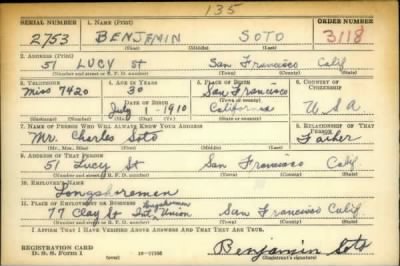 135
SERIAL NUMBER 1. NAME (Print) ORDER NUMBER
2753 BENJEMIN SOTO 3118
(First) (Middle) (Last)
2. ADDRESS (Print)
51 LUCY St San Francisco Calif
(Number and street or R. F. D. number) (Town) (County) (State)
3. TELEPHONE 4. AGE IN YEARS 5. PLACE OF BIRTH 6. COUNTRY OF CITIZENSHIP
Miss 7420 30 San Francisco
DATE OF BIRTH (Town or county)
July 1 1910 California U S A
(Exchange) (Number) (Mo.) (Day) (Yr.) (State or country)
7. NAME OF PERSON WHO WILL ALWAYS KNOW YOUR ADDRESS 8. RELATIONSHIP OF THAT PERSON
Mr. Charles Soto Father
(Mr., Mrs., Miss) (First) (Middle) (Last)
9. ADDRESS OF THAT PERSON
51 Lucy St San Francisco Calif
(Number and street or R. F. D. number) (Town) (County) (State)
10. EMPLOYER'S NAME
Longshoremen
11. PLACE OF EMPLOYMENT OR BUSINESS Longshoremen
77 Clay St Intl Union San Francisco Calif
(Number and street or R. F. D. number) (Town) (County) (State)
I AFFIRM THAT I HAVE VERIFIED ABOVE ANSWERS AND THAT THEY ARE TRUE.
REGISTRATION CARD
D. S. S. Form 1 (over) Benjamin Soto
(Registrant's signature)